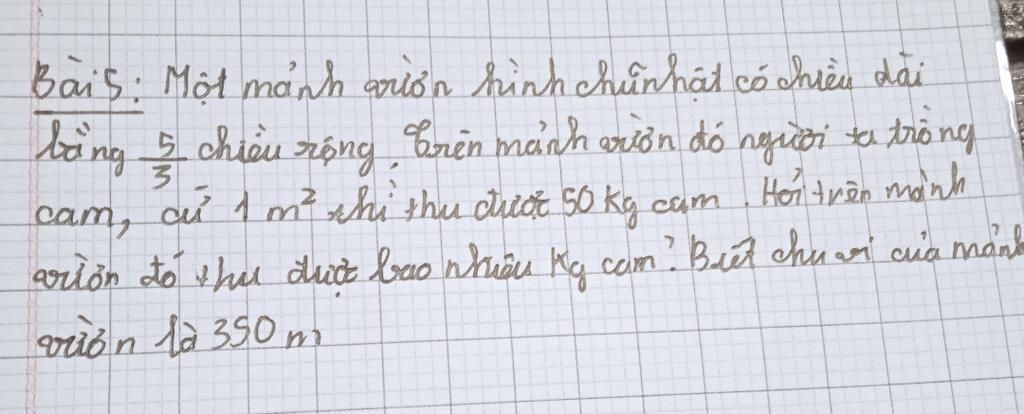 Bài 5: Một mảnh vườn hình chữ nhật có chiều dài
bằng 5/3 chiều rộng. Trên mảnh vườn đó người ta trồng
cam, cứ 1 m² thì thu được 50 kg cam. Hỏi trên mảnh
vườn đó thu được bao nhiêu kg cam? Biết chu vi của mảnh
vườn là 350 m